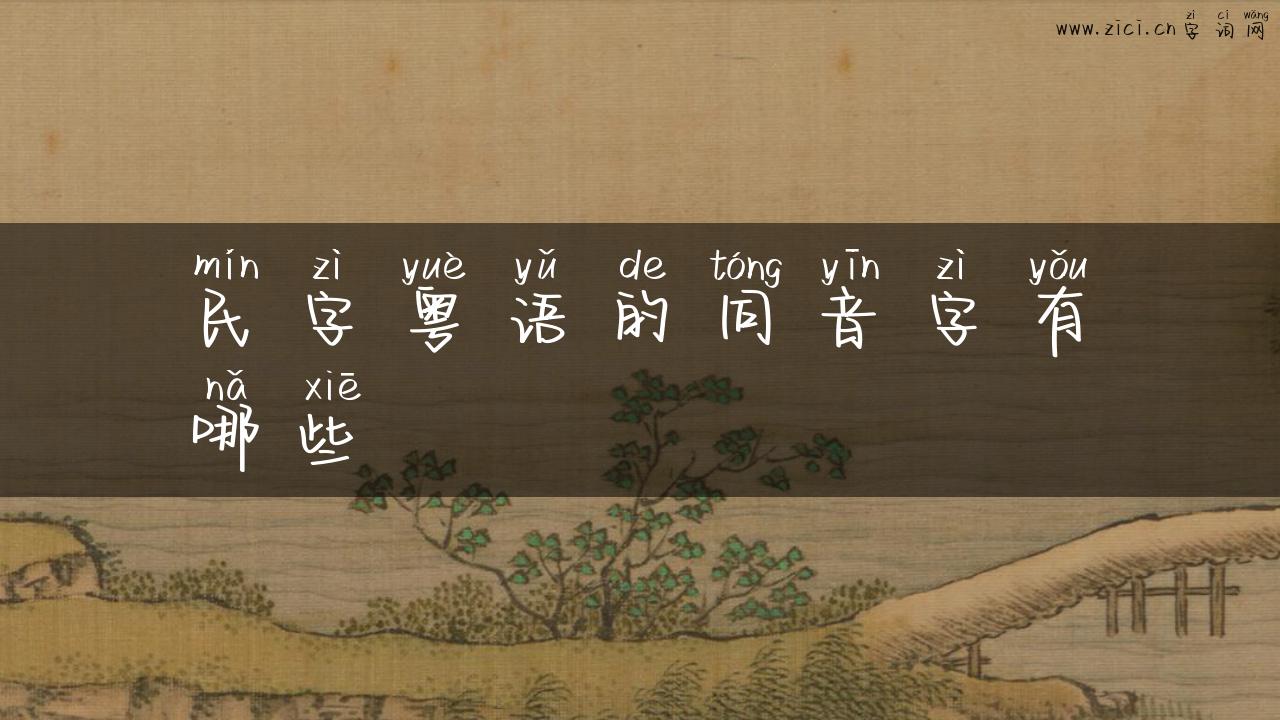 zì cí wǎng
www.zici.cn 字 词 网
mín zì yuè yǔ de tóng yīn zì yǒu
民 字 粤 语 的 同 音 字 有
nǎ xiē
哪 些